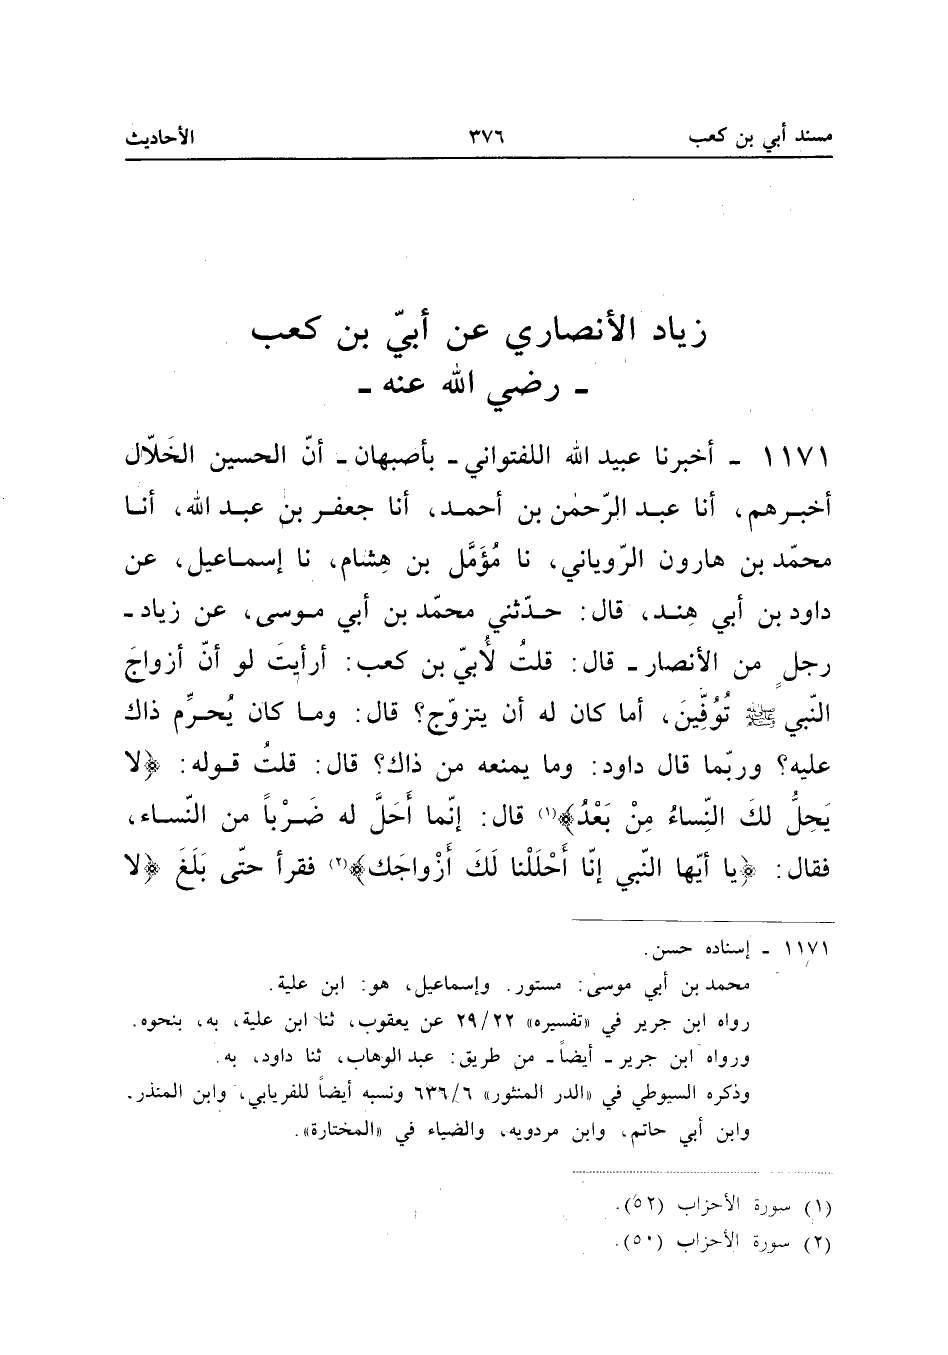 مسند أبي بن كعب ٣٧٦ الأحاديث
زياد الأنصاري عن أبيّ بن كعب
ـ رضي الله عنه ـ
١١٧١ ـ أخبرنا عبيد الله اللفتواني ـ بأصبهان ـ أنّ الحسين الخَلّال
أخبرهم، أنا عبد الرّحمٰن بن أحمد، أنا جعفر بن عبد الله، أنا
محمّد بن هارون الرّوياني، نا مُؤَمَّل بن هِشام، نا إسماعيل، عن
داود بن أبي هِند، قال: حدّثني محمّد بن أبي موسى، عن زياد ـ
رجلٍ من الأنصار ـ قال: قلتُ لأُبيّ بن كعب: أرأيتَ لو أنّ أزواجَ
النّبي ﷺ تُوُفِّينَ، أما كان له أن يتزوّج؟ قال: وما كان يُحرِّم ذاك
عليه؟ وربّما قال داود: وما يمنعه من ذاك؟ قال: قلتُ قوله: ﴿لا
يَحِلُّ لكَ النِّساءُ مِنْ بَعْدُ﴾(١) قال: إنّما أَحَلَّ له ضَرْباً من النّساء،
فقال: ﴿يا أيّها النّبي إنّا أَحْلَلْنا لَكَ أَزْواجَك﴾(٢) فقرأ حتّى بَلَغَ ﴿لا
١١٧١ ـ إسناده حسن.
محمد بن أبي موسى: مستور. وإسماعيل، هو: ابن علية.
رواه ابن جرير في «تفسيره» ٢٩/٢٢ عن يعقوب، ثنا ابن علية، به، بنحوه.
ورواه ابن جرير ـ أيضاً ـ من طريق: عبد الوهاب، ثنا داود، به.
وذكره السيوطي في «الدر المنثور» ٦٣٦/٦ ونسبه أيضاً للفريابي، وابن المنذر.
وابن أبي حاتم، وابن مردويه، والضياء في «المختارة».
(١) سورة الأحزاب (٥٢).
(٢) سورة الأحزاب (٥٠).